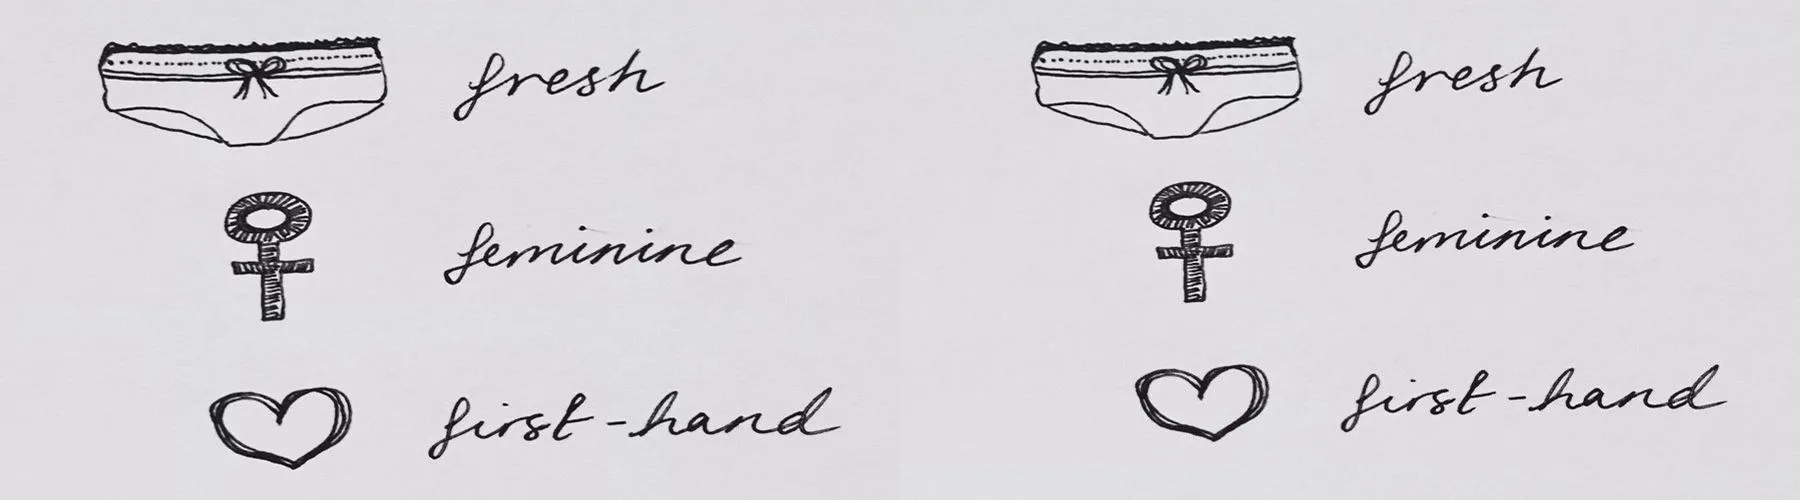 fresh
feminine
first-hand
fresh
feminine
first-hand